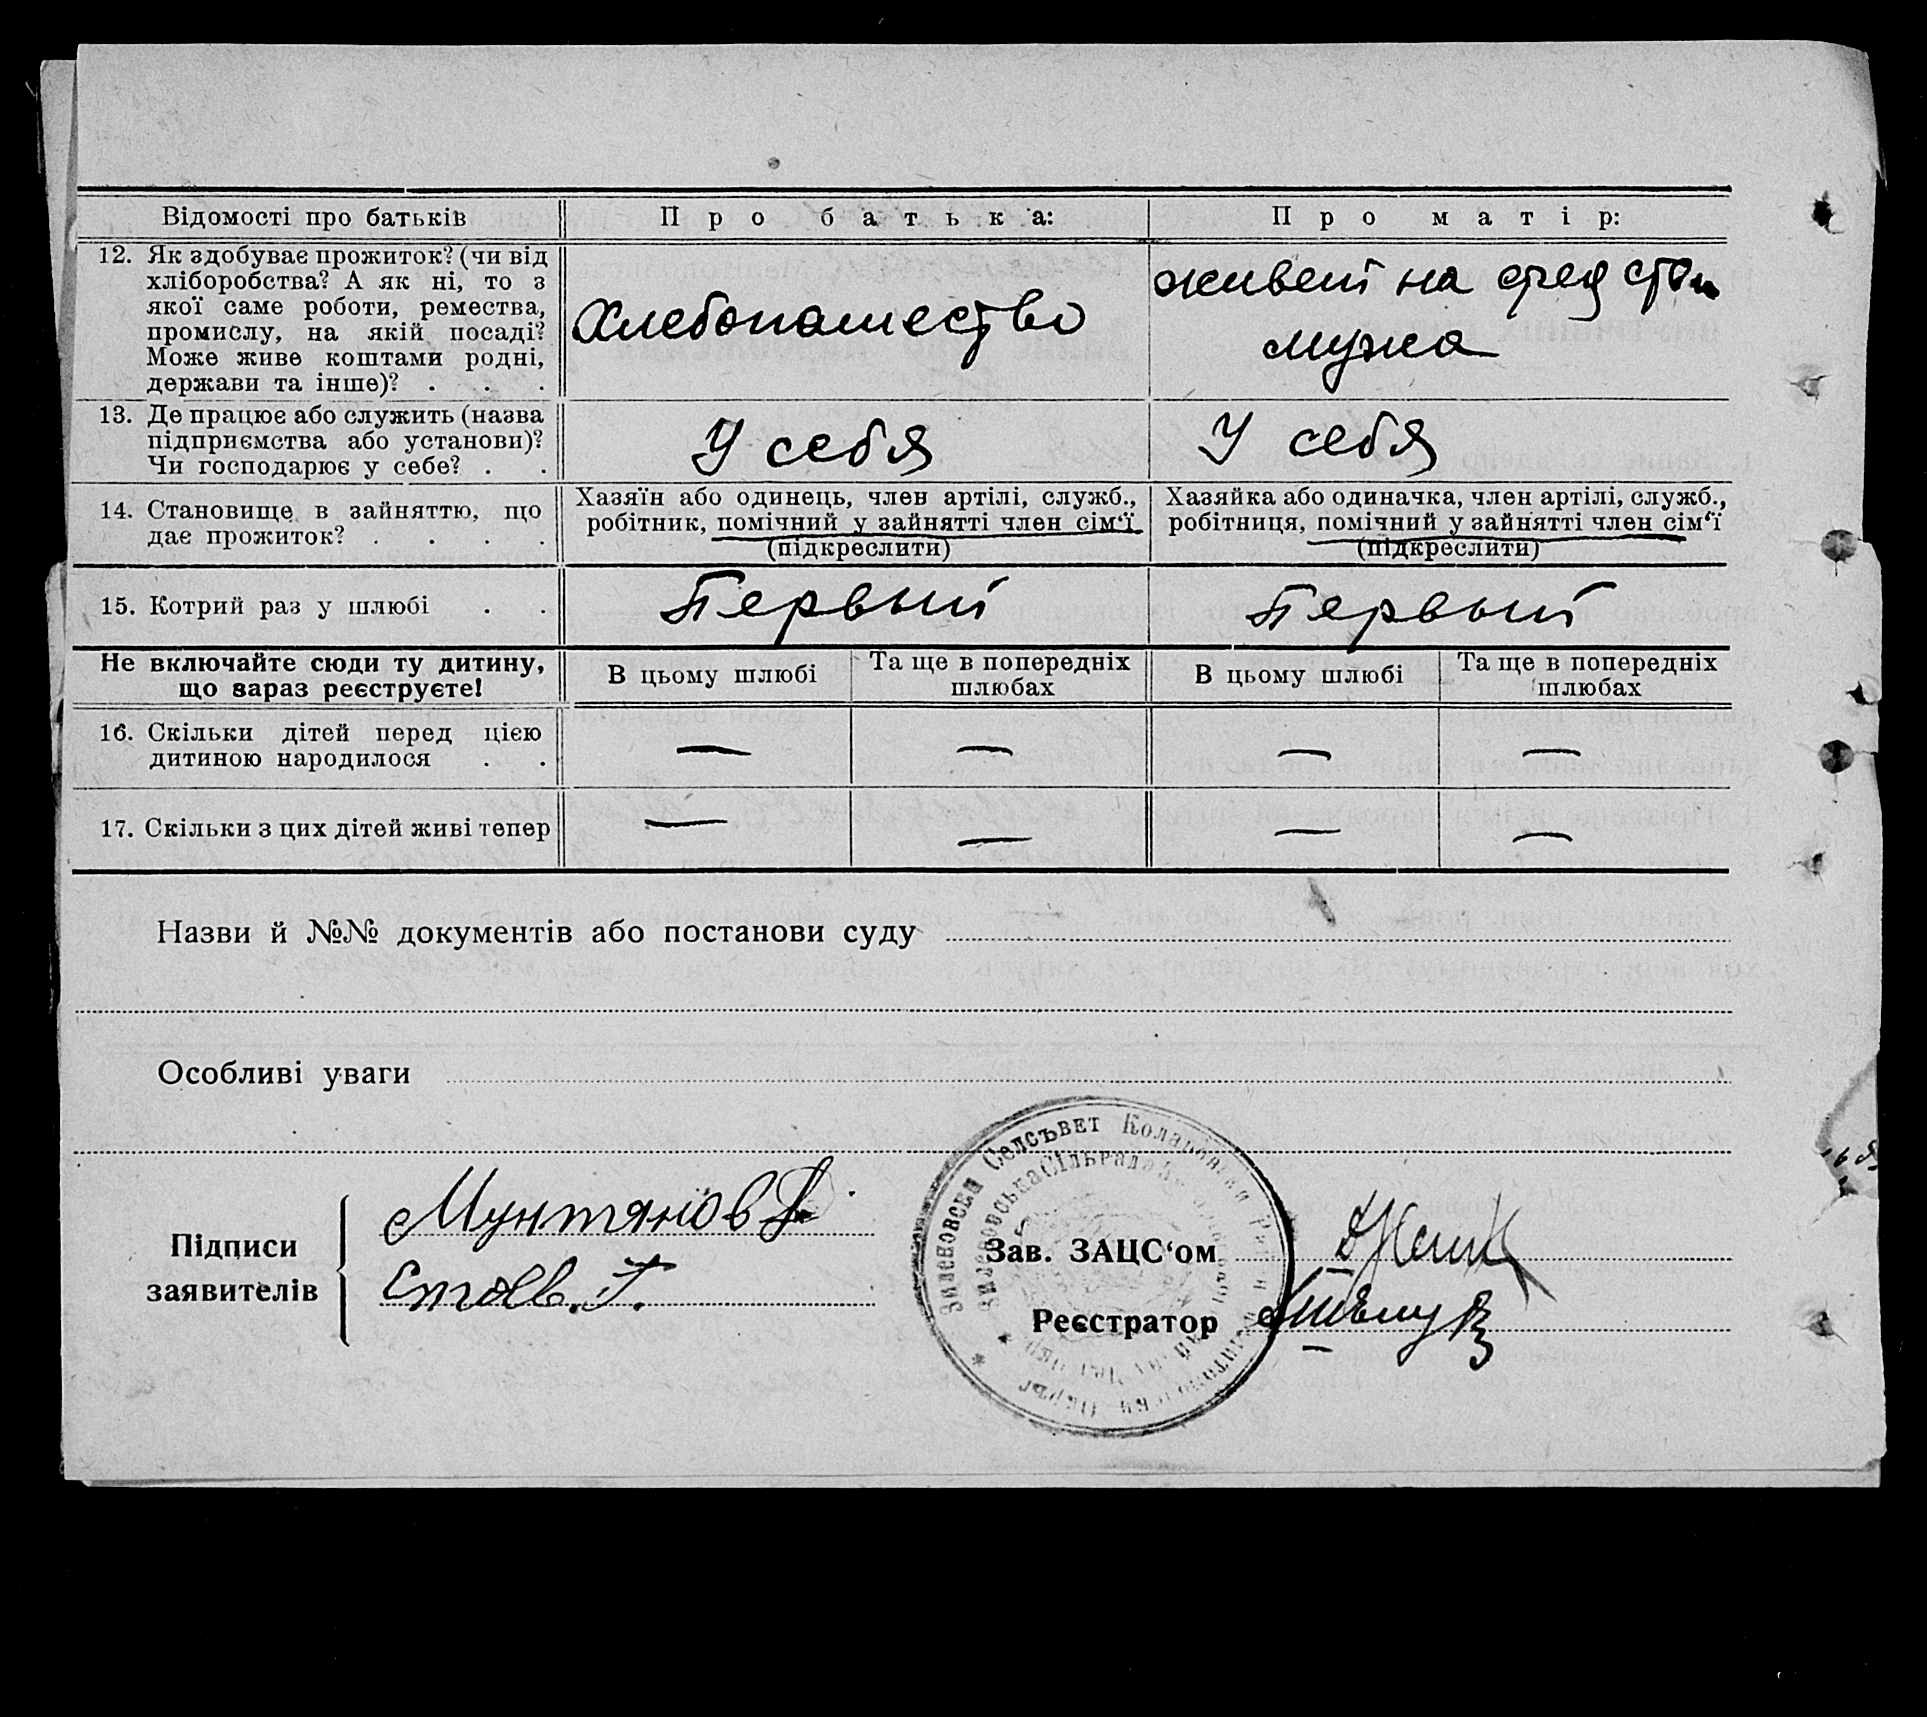 Відомості про батьків
Про батька:
Про матір:
12. Як здобуває прожиток? (чи від
хліборобства? А як ні, то з
якої саме роботи, ремества,
промислу, на якій посаді?
Може живе коштами родні,
держави та інше)? . . .
Хлебопашество
живет на сред ства
мужа
13. Де працює або служить (назва
підприємства або установи)?
Чи господарює у себе? . .
У себя
У себя
14. Становище в зайняттю, що
дає прожиток? . . . .
Хазяїн або одинець, член артілі, служб.,
робітник, помічний у зайнятті член сім‘ї
(підкреслити)
Хазяйка або одиначка, член артілі, служб.,
робітниця, помічний у зайнятті член сім‘ї
(підкреслити)
15. Котрий раз у шлюбі . .
Первый
Первый
Не включайте сюди ту дитину,
що зараз реєструєте!
В цьому шлюбі
Та ще в попередніх
шлюбах
В цьому шлюбі
Та ще в попередніх
шлюбах
16. Скільки дітей перед цією
дитиною народилося . .
— — — —
17. Скільки з цих дітей живі тепер
— — — —
Назви й №№ документів або постанови суду
Особливі уваги
Підписи
заявителів
Мунтянов
Зав. ЗАЦС‘ом
Реєстратор
Селсъвет Коларовски
Сільрада